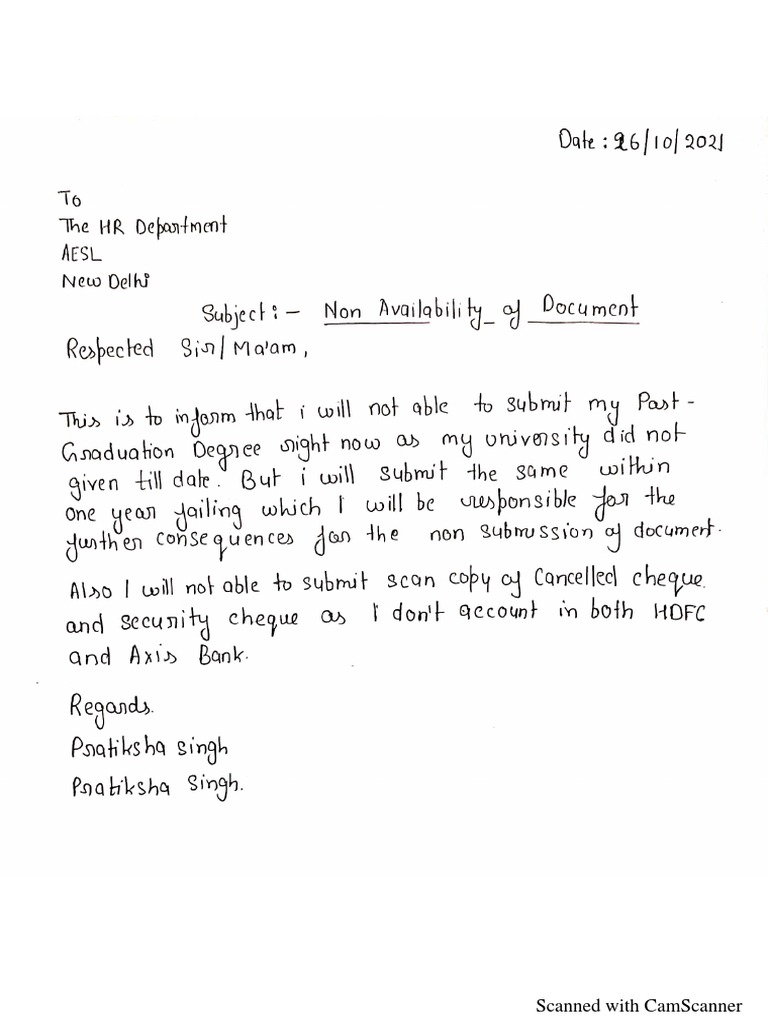 Date : 26/10/2021
To
The HR Department
AESL
New Delhi
Subject :- Non Availability of Document
Respected Sir/Ma'am,
This is to inform that i will not able to submit my Post-
Graduation Degree right now as my university did not
given till date. But i will submit the same within
one year failing which I will be responsible for the
further consequences for the non submission of document.
Also I will not able to submit scan copy of Cancelled cheque
and security cheque as I don't account in both HDFC
and Axis Bank.
Regards.
Pratiksha singh
Pratiksha Singh.
Scanned with CamScanner